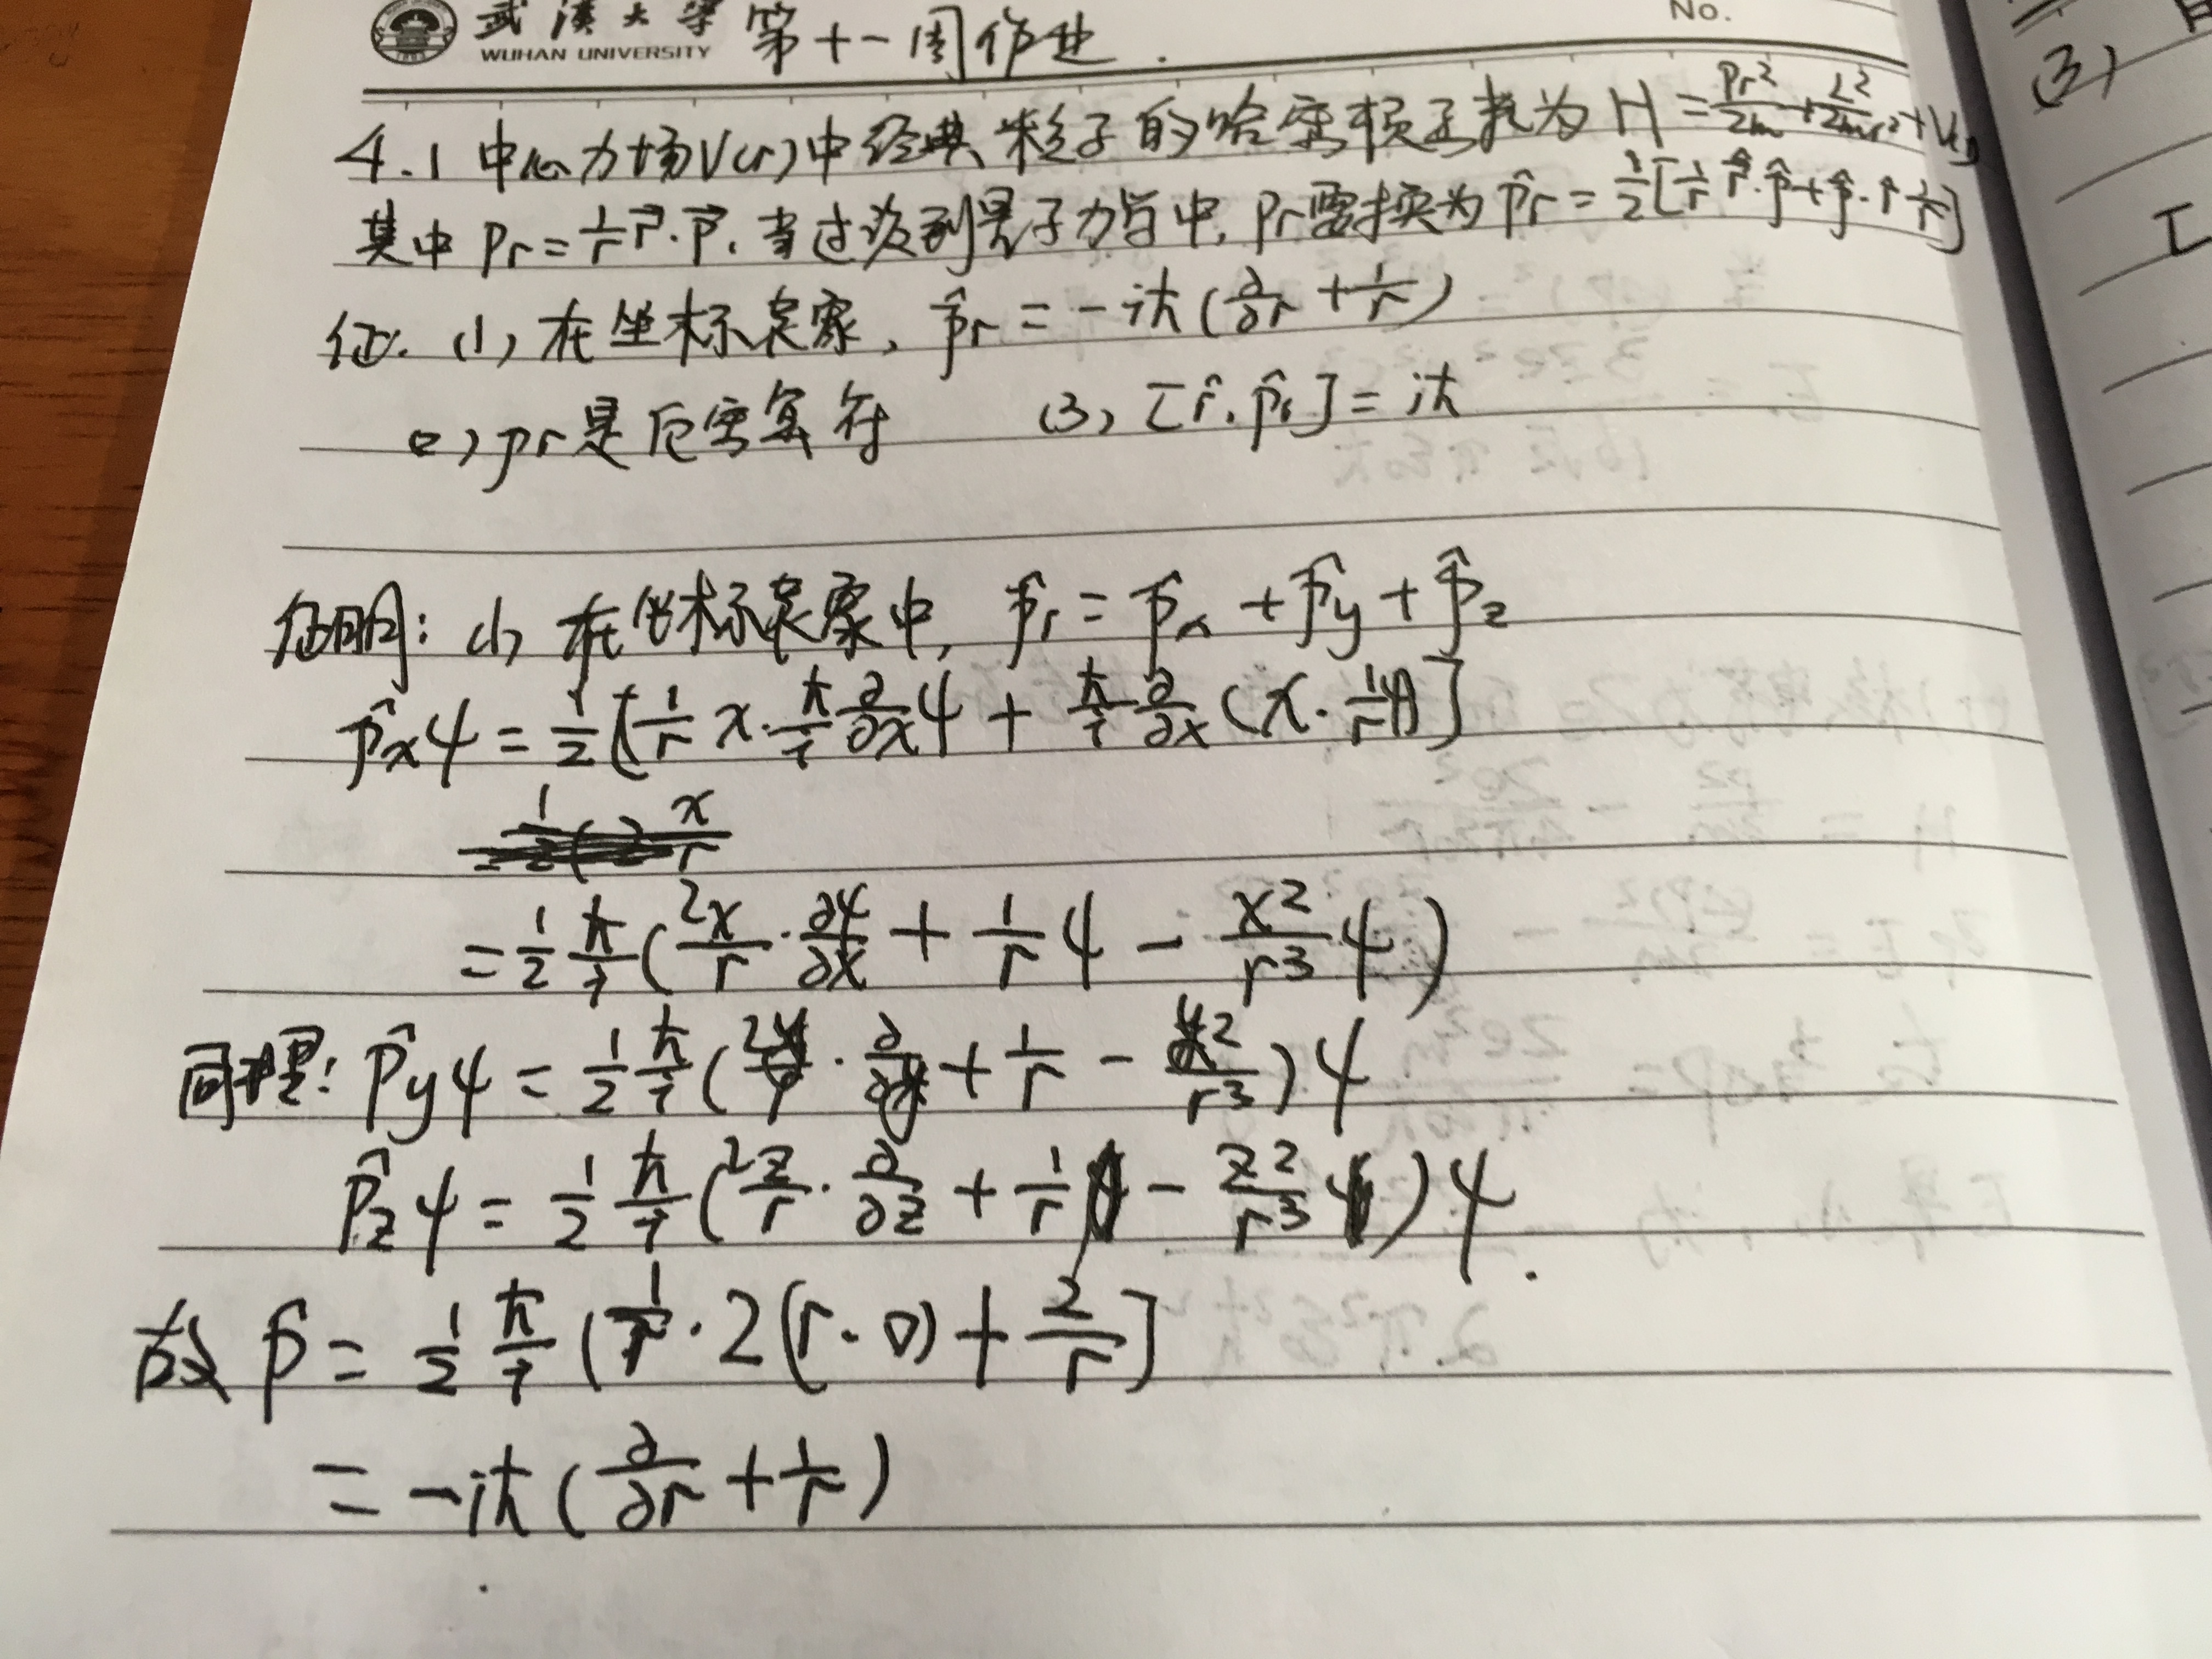 武漢大學 WUHAN UNIVERSITY 第十一周作业. No.
4.1 中心力场V(r)中经典粒子的哈密顿函数为 H = Pr²/2m + L²/2mr² + V(r)
其中 Pr = 1/r r⃗·p⃗. 当过渡到量子力学中, Pr需换为 p̂r = 1/2[1/r r̂·p̂ + p̂·r̂ 1/r]
证: (1) 在坐标表象, p̂r = -iħ(∂/∂r + 1/r)
(2) pr是厄密算符 (3) [r̂, p̂r] = iħ
证明: (1) 在坐标表象中, p̂r = p̂x + p̂y + p̂z
p̂xψ = 1/2[1/r x·ħ/i ∂/∂x ψ + ħ/i ∂/∂x (x·1/r ψ)]
= 1/2 ħ/i (2x/r · ∂ψ/∂x + 1/r ψ - x²/r³ ψ)
同理: p̂yψ = 1/2 ħ/i (2y/r · ∂/∂y + 1/r - y²/r³)ψ
p̂zψ = 1/2 ħ/i (2z/r · ∂/∂z + 1/r - z²/r³)ψ.
故 p̂ = 1/2 ħ/i (1/r · 2(r·∇) + 2/r]
= -iħ(∂/∂r + 1/r)
(3)